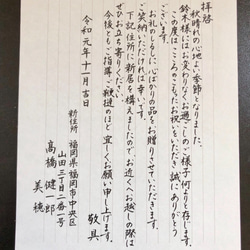 拝啓
秋晴れの心地よい季節となりました。
鈴木様にはお変わりなくお過ごしのご様子何よりと存じます。
この度は、こころのこもったお祝いをいただき誠にありがとう
ございました。
お礼のしるしに心ばかりの品をお贈りさせていただきます。
ご笑納いただければ幸いです。
下記住所に新居を構えましたので、お近くへお越しの際は
ぜひお立ち寄りください。
今後ともご指導、ご鞭撻のほど宜しくお願い申し上げます。
敬具
令和元年十一月吉日
新住所 福岡県福岡市中央区
山田三丁目二番一号
髙橋 健一郎
美穂